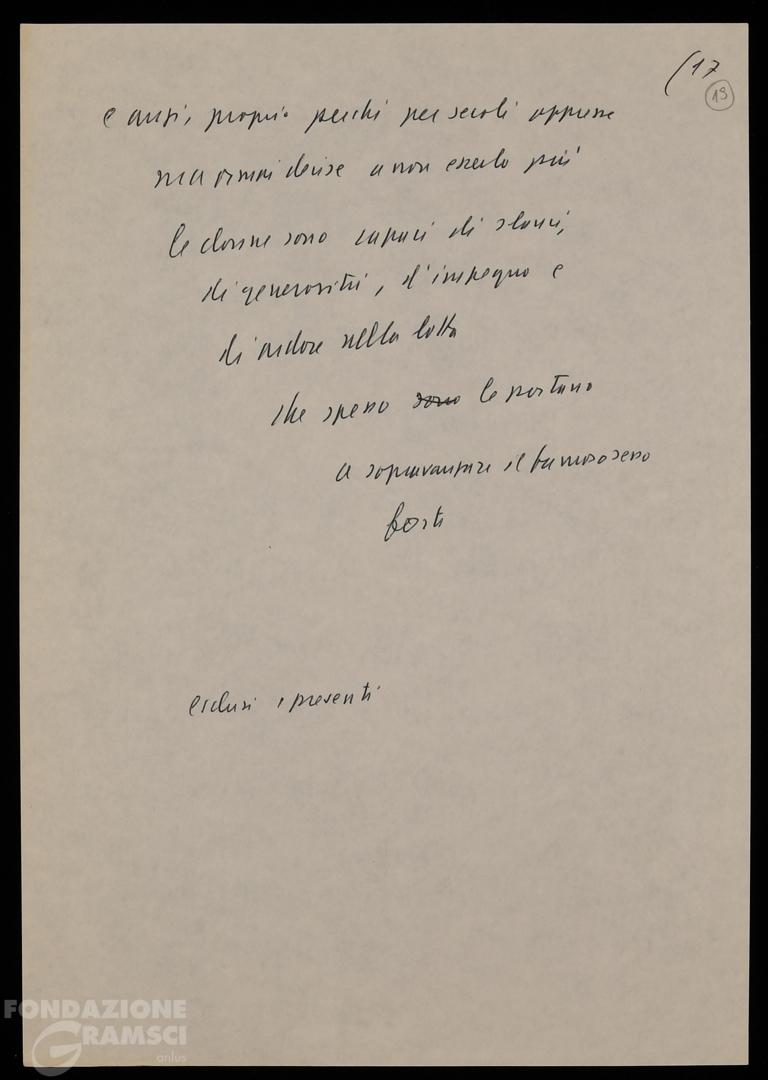 (17
19
e anzi, proprio perché per secoli oppresse
ma ormai decise a non esserlo più
le donne sono capaci di slanci,
di generosità, d'impegno e
di ardore nella lotta
che spesso sono le portano
a sopravanzare il famoso sesso
forte
esclusi i presenti
FONDAZIONE
GRAMSCI
onlus